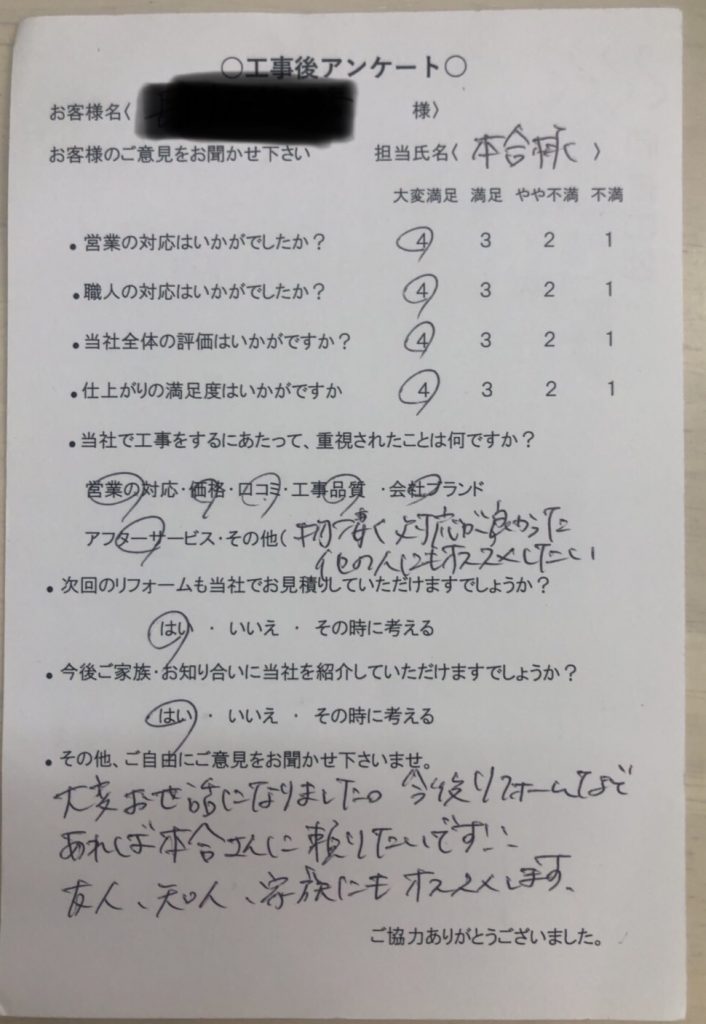 〇工事後アンケート〇
お客様名( 様)
お客様のご意見をお聞かせ下さい 担当氏名( 本合 )
大変満足 満足 やや不満 不満
・営業の対応はいかがでしたか? 4 3 2 1
・職人の対応はいかがでしたか? 4 3 2 1
・当社全体の評価はいかがですか? 4 3 2 1
・仕上がりの満足度はいかがですか 4 3 2 1
・当社で工事をするにあたって、重視されたことは何ですか?
営業の対応・価格・口コミ・工事品質 ・会社ブランド
アフターサービス・その他( 対応が良かった
他の人にもオススメしたい
・次回のリフォームも当社でお見積りしていただけますでしょうか?
はい ・ いいえ ・ その時に考える
・今後ご家族・お知り合いに当社を紹介していただけますでしょうか?
はい ・ いいえ ・ その時に考える
・その他、ご自由にご意見をお聞かせ下さいませ。
大変お世話になりました。今後リフォームなど
あれば本合さんに頼りたいです
友人、知人、家族にもオススメします、
ご協力ありがとうございました。